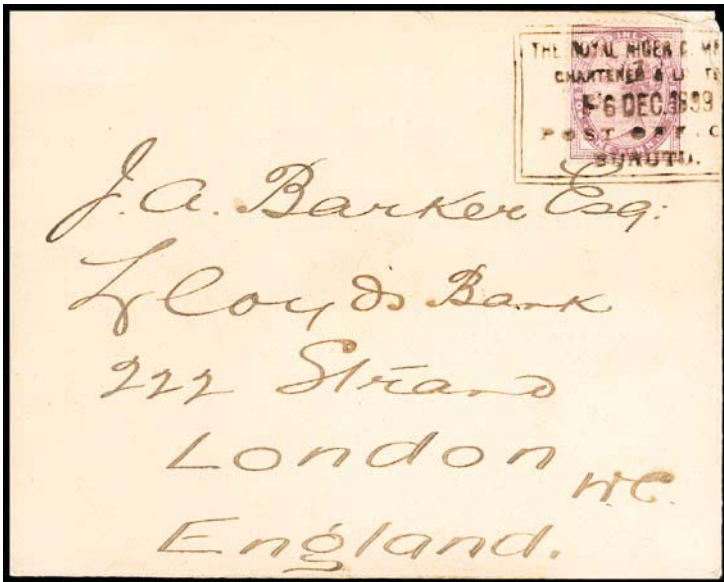 THE ROYAL NIGER
CHARTERED & LI
6 DEC 1899
POST OFFIC
BURUTU.
J. A. Barker Esq:
Lloyds Bank
222 Strand
London
W.C.
England.